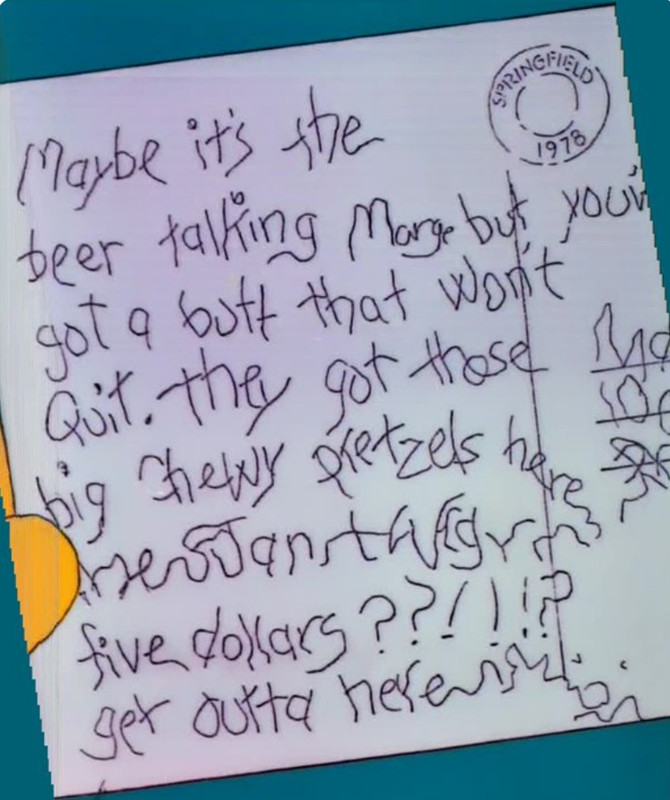 SPRINGFIELD
1978
Maybe it's the
beer talking Marge but you'v
got a butt that won't
Quit. they got those
big Chewy pretzels here
five dollars ??!!!?
get outta here